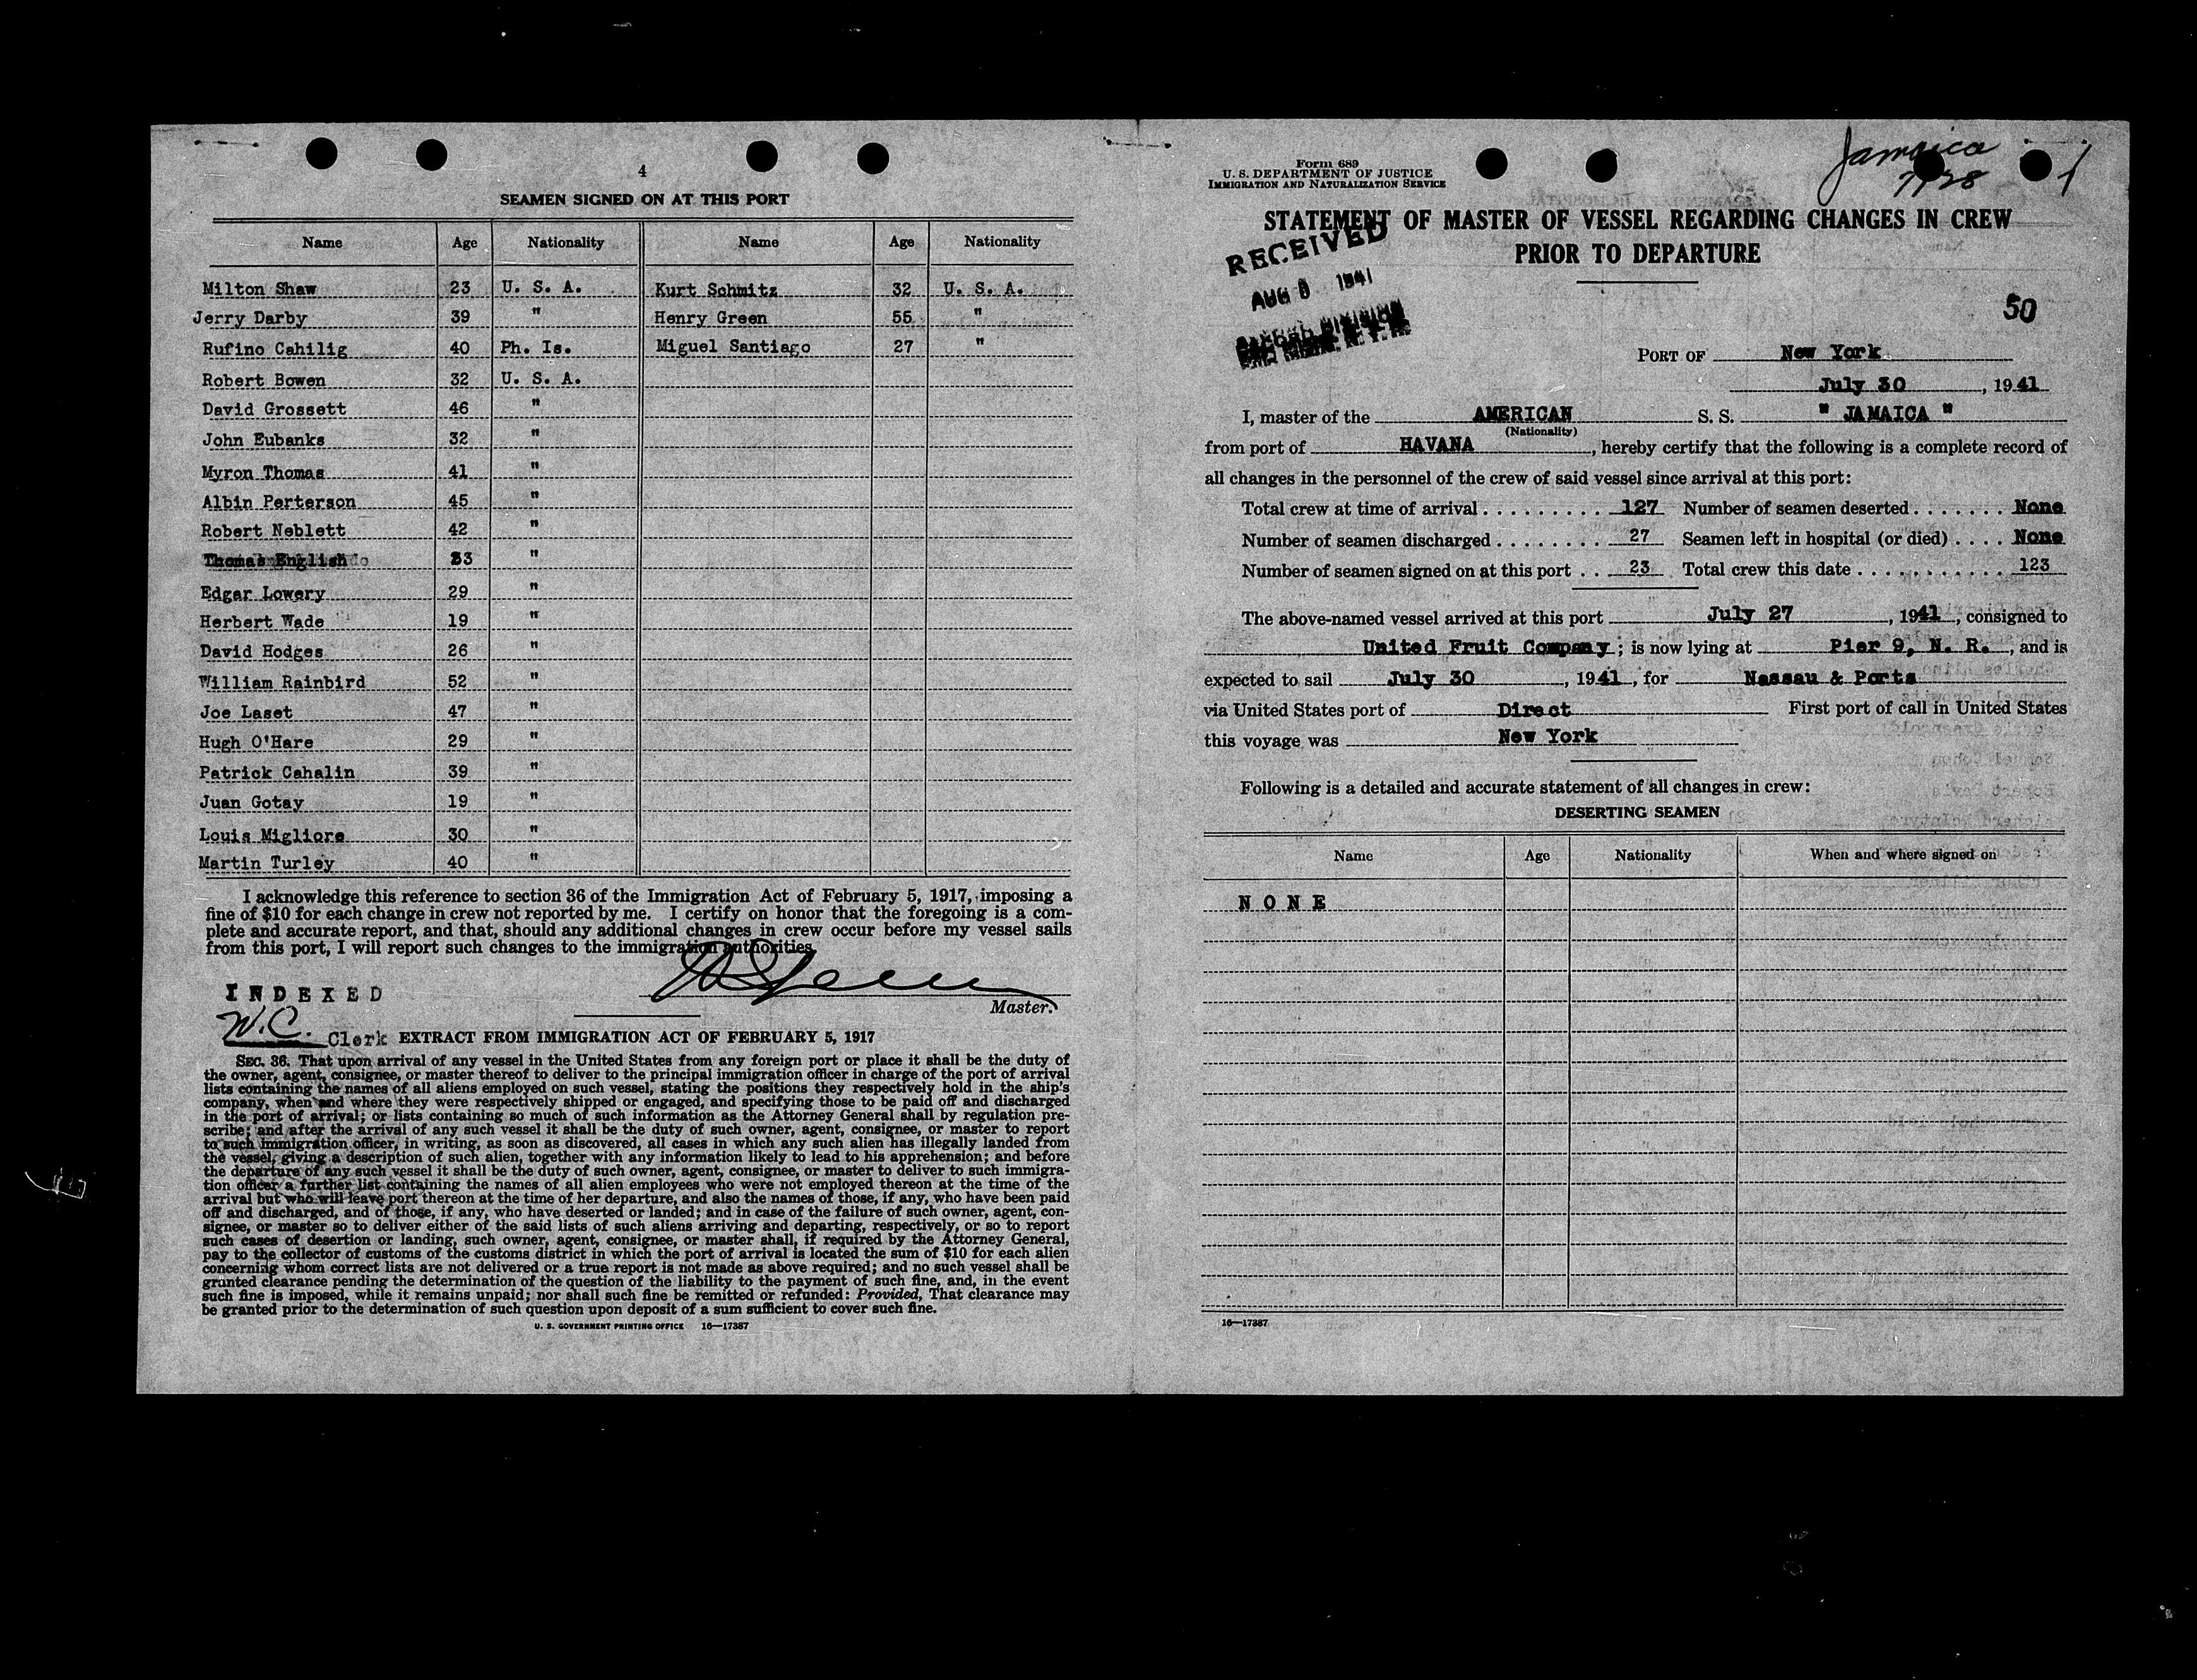 4
SEAMEN SIGNED ON AT THIS PORT
Name Age Nationality Name Age Nationality
Milton Shaw 23 U. S. A. Kurt Schmitz 32 U. S. A.
Jerry Darby 39 " Henry Green 55 "
Rufino Cahilig 40 Ph. Is. Miguel Santiago 27 "
Robert Bowen 32 U. S. A.
David Grossett 46 "
John Eubanks 32 "
Myron Thomas 41 "
Albin Perterson 45 "
Robert Neblett 42 "
Thomas English 33 "
Edgar Lowery 29 "
Herbert Wade 19 "
David Hodges 26 "
William Rainbird 52 "
Joe Laset 47 "
Hugh O'Hare 29 "
Patrick Cahalin 39 "
Juan Gotay 19 "
Louis Migliore 30 "
Martin Turley 40 "
I acknowledge this reference to section 36 of the Immigration Act of February 5, 1917, imposing a
fine of $10 for each change in crew not reported by me. I certify on honor that the foregoing is a com-
plete and accurate report, and that, should any additional changes in crew occur before my vessel sails
from this port, I will report such changes to the immigration authorities.
INDEXED
Master.
W.C. Clerk
EXTRACT FROM IMMIGRATION ACT OF FEBRUARY 5, 1917
SEC. 36. That upon arrival of any vessel in the United States from any foreign port or place it shall be the duty of
the owner, agent, consignee, or master thereof to deliver to the principal immigration officer in charge of the port of arrival
lists containing the names of all aliens employed on such vessel, stating the positions they respectively hold in the ship's
company, when and where they were respectively shipped or engaged, and specifying those to be paid off and discharged
in the port of arrival; or lists containing so much of such information as the Attorney General shall by regulation pre-
scribe; and after the arrival of any such vessel it shall be the duty of such owner, agent, consignee, or master to report
to such immigration officer, in writing, as soon as discovered, all cases in which any such alien has illegally landed from
the vessel, giving a description of such alien, together with any information likely to lead to his apprehension; and before
the departure of any such vessel it shall be the duty of such owner, agent, consignee, or master to deliver to such immigra-
tion officer a further list containing the names of all alien employees who were not employed thereon at the time of the
arrival but who will leave port thereon at the time of her departure, and also the names of those, if any, who have been paid
off and discharged, and of those, if any, who have deserted or landed; and in case of the failure of such owner, agent, con-
signee, or master so to deliver either of the said lists of such aliens arriving and departing, respectively, or so to report
such cases of desertion or landing, such owner, agent, consignee, or master shall, if required by the Attorney General,
pay to the collector of customs of the customs district in which the port of arrival is located the sum of $10 for each alien
concerning whom correct lists are not delivered or a true report is not made as above required; and no such vessel shall be
granted clearance pending the determination of the question of the liability to the payment of such fine, and, in the event
such fine is imposed, while it remains unpaid; nor shall such fine be remitted or refunded: Provided, That clearance may
be granted prior to the determination of such question upon deposit of a sum sufficient to cover such fine.
U. S. GOVERNMENT PRINTING OFFICE 16—17387
Form 689
U. S. DEPARTMENT OF JUSTICE
IMMIGRATION AND NATURALIZATION SERVICE
Jamaica
7/28
1
STATEMENT OF MASTER OF VESSEL REGARDING CHANGES IN CREW
PRIOR TO DEPARTURE
RECEIVED
AUG 1941
50
PORT OF New York
July 30, 1941
I, master of the AMERICAN S. S. " JAMAICA "
(Nationality)
from port of HAVANA, hereby certify that the following is a complete record of
all changes in the personnel of the crew of said vessel since arrival at this port:
Total crew at time of arrival . . . . . . . . . . 127 Number of seamen deserted . . . . . . . None
Number of seamen discharged . . . . . . . . 27 Seamen left in hospital (or died) . . . . None
Number of seamen signed on at this port . . 23 Total crew this date . . . . . . . . . . . 123
The above-named vessel arrived at this port July 27, 1941, consigned to
United Fruit Company; is now lying at Pier 9, N. R., and is
expected to sail July 30, 1941, for Nassau & Ports
via United States port of Direct First port of call in United States
this voyage was New York
Following is a detailed and accurate statement of all changes in crew:
DESERTING SEAMEN
Name Age Nationality When and where signed on
N O N E
16—17387